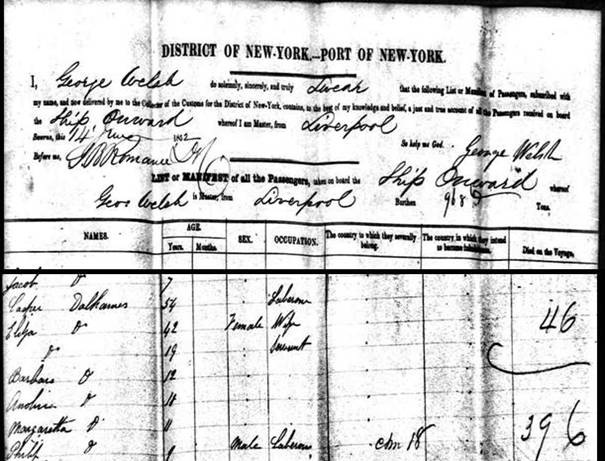 DISTRICT OF NEW-YORK.—PORT OF NEW-YORK.
I, George Welsh do solemnly, sincerely, and truly Swear that the following List or Manifest of Passengers, subscribed with
my name, and now delivered by me to the Collector of the Customs for the District of New-York, contains, to the best of my knowledge and belief, a just and true account of all the Passengers received on board
the Ship Onward whereof I am Master, from Liverpool
Sworn, this 14 June 1852 So help me God. George Welsh
Before me,
LIST or MANIFEST of all the Passengers, taken on board the Ship Onward whereof
Geos Welsh is Master, from Liverpool Burthen 968 Tons.
NAMES. AGE. SEX. OCCUPATION. The country to which they severally belong. The country in which they intend to become inhabitants. Died on the Voyage.
Years. Months.
Jacob Do 7
Casper 54 Laborer
Eliza Do 42 Female Wife 46
Do 19 Servant
Barbara Do 12
Do 11
Margaretha Do 11 396
Philip Do 9 Male Laborer 18